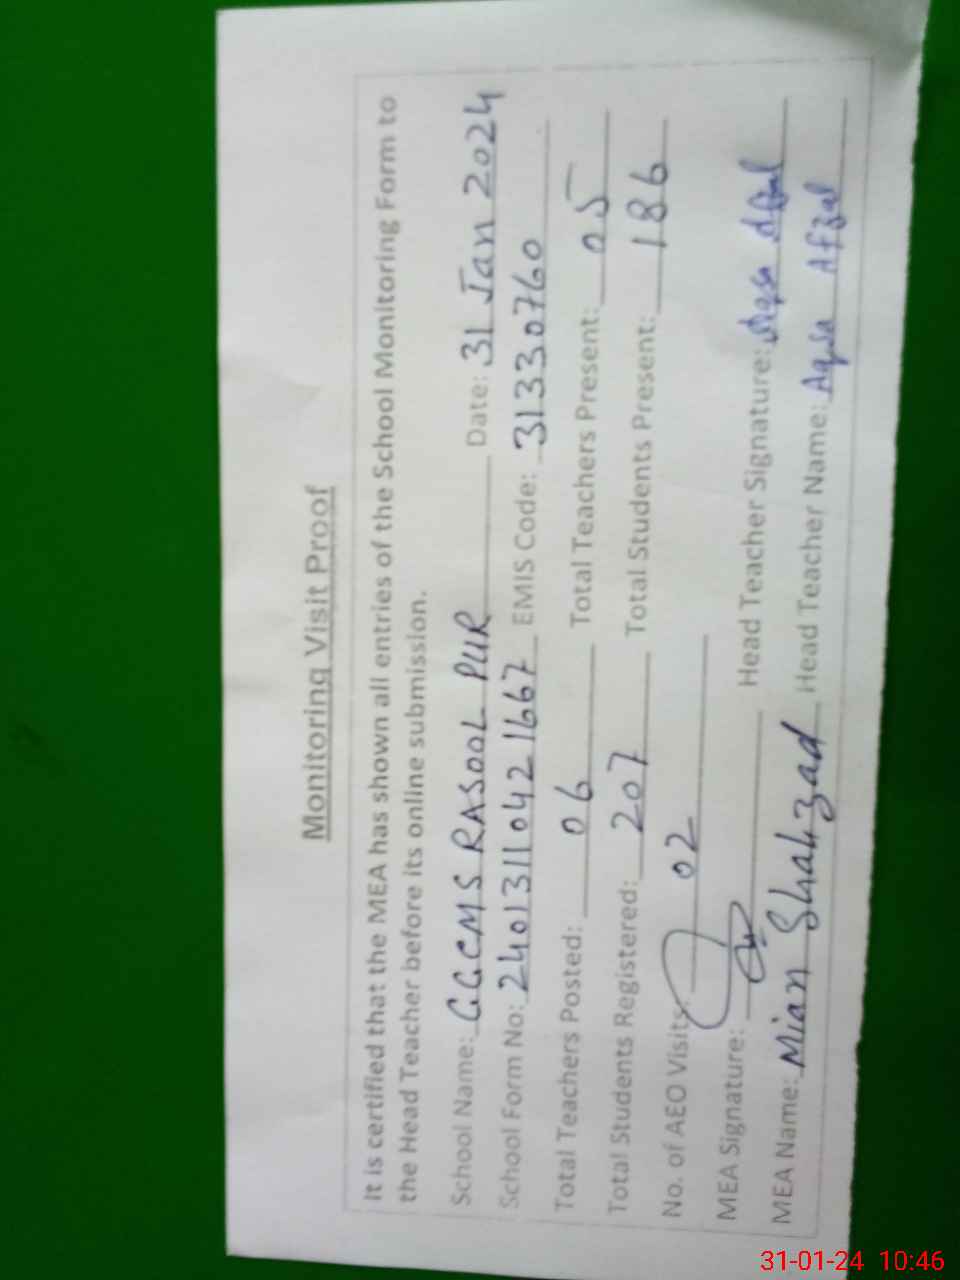 Monitoring Visit Proof
It is certified that the MEA has shown all entries of the School Monitoring Form to
the Head Teacher before its online submission.
School Name: GGCMS RASOOL PUR Date: 31 Jan 2024
School Form No: 2401311042 1667 EMIS Code: 31330760
Total Teachers Posted: 06 Total Teachers Present: 05
Total Students Registered: 207 Total Students Present: 186
No. of AEO Visits: 02
MEA Signature: Head Teacher Signature: Aqsa Afzal
MEA Name: Mian Shahzad Head Teacher Name: Aqsa Afzal
31-01-24 10:46